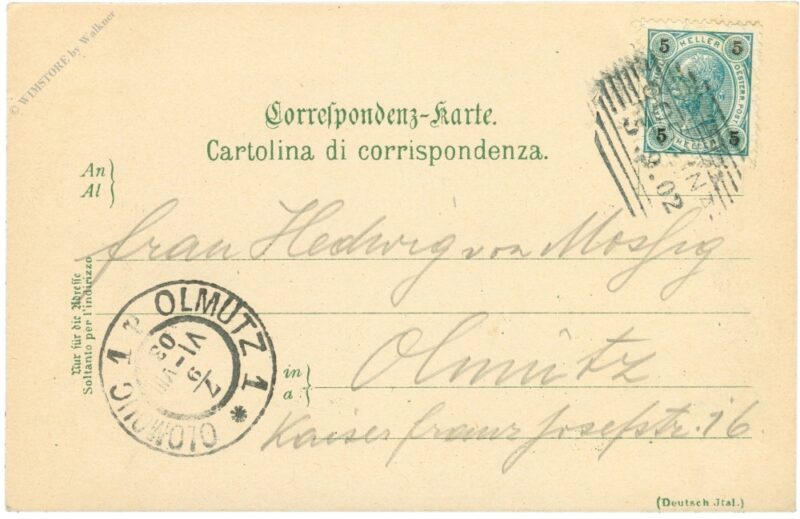 © WIMSTORE by Walkner
5 KELLER 5
OESTERR. POST.
5 KELLER 5
02
Correspondenz-Karte.
Cartolina di corrispondenza.
An
Al
Frau Hedwig von Mossig
Nur für die Adresse
Soltanto per l'indirizzo
OLMÜTZ 1
OLOMOUC 1
in
a
Olmütz
Kaiser Franz Josefstr. 16
(Deutsch Ital.)